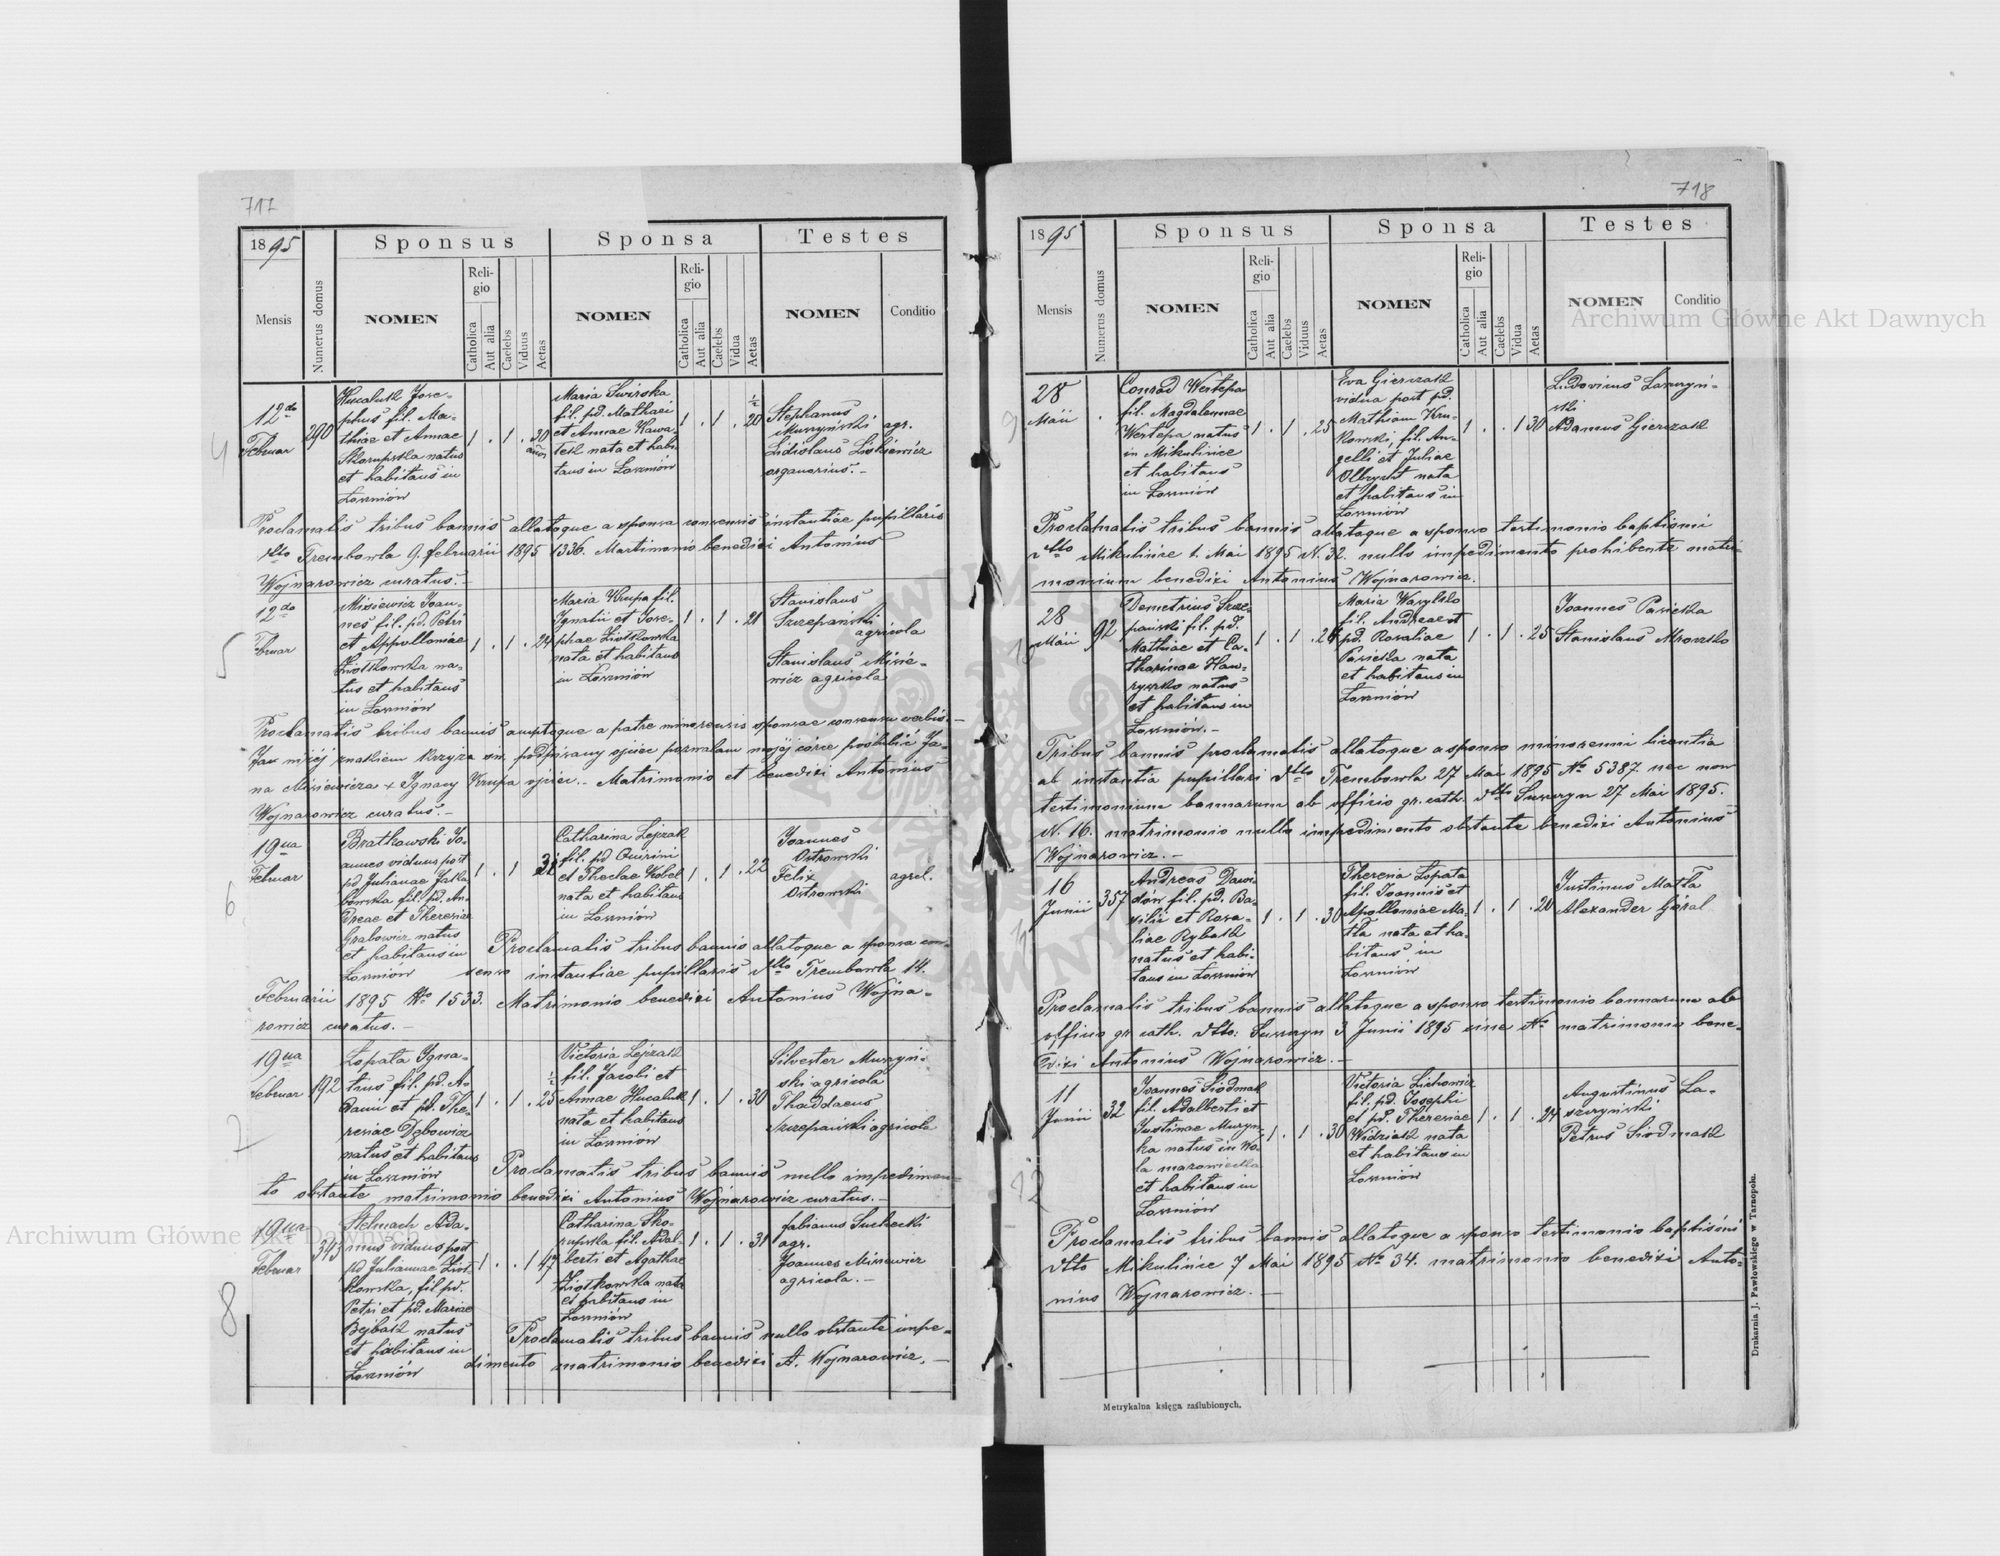 717
1895
Sponsus
Sponsa
Testes
Mensis
Numerus domus
NOMEN
Religio
Catholica
Aut alia
Caelebs
Viduus
Aetas
NOMEN
Religio
Catholica
Aut alia
Caelebs
Vidua
Aetas
NOMEN
Conditio
4
12do
Februar
290
Hucaluk Jose-
phus fil. Ma-
thiae et Annae
Skorupska natus
et habitans in
Łoszniów
1 . 1 . 30
Maria Świrska
fil. pd. Mathaei
et Annae Hawa-
tek nata et habi-
tans in Łoszniów
1 . 1 . 20
Stephanus
Muszyński agr.
Ladislaus Liskiewicz
organarius. -
Proclamatis tribus bannis allatoque a sponsa consensis instantiae pupillaris
dtto Trembowla 9. februarii 1895 1336. Martimonio benedixi Antonius
Wojnarowicz curatus. -
5
12do
Fbruar
Misiewicz Joan-
nes fil. pd. Petri
et Appolloniae
Ziółkowska na-
tus et habitans
in Łoszniów
1 . 1 . 24
Maria Krupa fil.
Ignatii et Jose-
phae Ziółkowska
nata et habitans
in Łoszniów
1 . 1 . 21
Stanislaus
Szczepański
agricola
Stanislaus Misie-
wicz agricola
Proclamatis tribus bannis acceptoque a patre minorensis sponsae consensu verbis. -
Jan niżej znakiem krzyża św. podpisany ojciec pozwalam mojej córce poślubić Ja-
na Misiewicza + Ignacy Krupa ojciec. - Matrimonio et benedixi Antonius
Wojnarowicz curatus. -
6
19na
Februar
Bratkowski Jo-
annes viduus post
pd Julianae Jaku-
bowska fil. pd. An-
dreae et Theresiae
Grabowicz natus
et habitans in
Łoszniów
1 . 1
Catharina Lejzak
fil. pd Quirini
et Theclae Kobel
nata et habitans
in Łoszniów
1 . 1 . 22
Joannes
Ostrowski
Felix agrcl.
Ostrowski
Proclamatis tribus bannis allatoque a sponsa con-
senso instantiae pupillaris dtto Trembowla 14.
Februarii 1895 No 1533. Matrimonio benedixi Antonius Wojna-
rowicz curatus. -
7
19na
Februar
192
Łopata Igna-
tius fil. pd. A-
dami et pd. The-
resiae Dębowicz
natus et habitans
in Łoszniów
1 . 1 . 25
Victoria Lejzak
fil. Jacobi et
Annae Hucaluk
nata et habitans
in Łoszniów
1 . 1 . 30
Silvester Muszyń-
ski agricola
Thaddaeus
Szczepański agricola
Proclamatis tribus bannis nullo impedimen-
to obstante matrimonio benedixi Antonius Wojnarowicz curatus. -
8
19na
Februar
343
Stelmach Ada-
mus viduus post
pd Julianae Ziół-
kowska, fil pd.
Petri et pd. Mariae
Bejbak natus
et habitans in
Łoszniów
1 . . 1 47
Catharina Sko-
rupska fil. Adal-
berti et Agathae
Ziółkowska nata
et habitans in
Łoszniów
1 . 1 . 31
fabianus Suchecki
agr.
Joannes Misiewicz
agricola. -
Proclamatis tribus bannis nullo obstante impe-
dimento matrimonio benedixi A. Wojnarowicz. -
718
1895
Sponsus
Sponsa
Testes
Mensis
Numerus domus
NOMEN
Religio
Catholica
Aut alia
Caelebs
Viduus
Aetas
NOMEN
Religio
Catholica
Aut alia
Caelebs
Vidua
Aetas
NOMEN
Conditio
9
28
Maii
Conrad Wertepa
fil. Magdalennae
Wertepa natus
in Mikulińce
et habitans
in Łoszniów
1 . 1 . 25
Eva Gierczak
vidua post pd.
Mathiam Kru-
kowski, fil. An-
gelli et Juliae
Olbrycht nata
et habitans in
Łoszniów
1 . . 1 30
Ludovicus Łaszczyń-
ski
Adamus Gierczak
Proclamatis tribus bannis allatoque a sponso testimonio baptismi
dtto Mikulińce 1. Mai 1895 N. 32. nullo impedimento prohibente matri-
monium benedixi Antonius Wojnarowicz.
28
Maii
92
Demetrius Szcze-
pański fil. pd.
Mathiae et Ca-
tharinae Haw-
ryszko natus
et habitans in
Łoszniów. -
1 . 1 . 24
Maria Wasylko
fil. Andreae et
pd. Rosaliae
Pasieka nata
et habitans in
Łoszniów
1 . 1 . 25
Joannes Pasieka
Stanislaus Mrozko
Tribus bannis proclamatis allatoque a sponso minorenni licentia
ab instantia pupillari dtto Trembowla 27 Mai 1895 No 5387. nec non
testimonium bannarum ab officio gr. cath. dtto Suszczyn 27 Mai 1895.
N. 16. matrimonio nullo impedimento obstante benedixi Antonius
Wojnarowicz. -
11
16
Junii
357
Andreas Dawi-
dów fil. pd. Ba-
silii et Rosa-
liae Rybak
natus et habi-
tans in Łoszniów
1 . 1 . 30
Theresia Łopata
fil. Joannis et
Apolloniae Ma-
tła nata et ha-
bitans in
Łoszniów
1 . 1 . 20
Justinus Matła
Alexander Góral
Proclamatis tribus bannis allatoque a sponso testimonio bannarum ab
officio gr cath. dtto: Suszczyn 3 Junii 1895 sine No matrimonio bene-
dixi Antonius Wojnarowicz. -
12
11
Junii
32
Joannes Siodmak
fil. Adalberti et
Justinae Muzyn-
ka natus in Wo-
la mazowiecka
et habitans in
Łoszniów
1 . 1 . 30
Victoria Lichowicz
fil. pd. Josephi
et pd. Theresiae
Widziak nata
et habitans in
Łoszniów
1 . 1 . 24
Augustinus Ła-
szczyński
Petrus Siodmak
Proclamatis tribus bannis allatoque a sponso testimonio baptismi
dtto Mikulińce 7 Mai 1895 No 34. matrimonio benedixi Anto-
nius Wojnarowicz. -
Metrykalna księga zaślubionych.
Drukarnia J. Pawłowskiego w Tarnopolu.
Archiwum Główne Akt Dawnych
Archiwum Główne Akt Dawnych